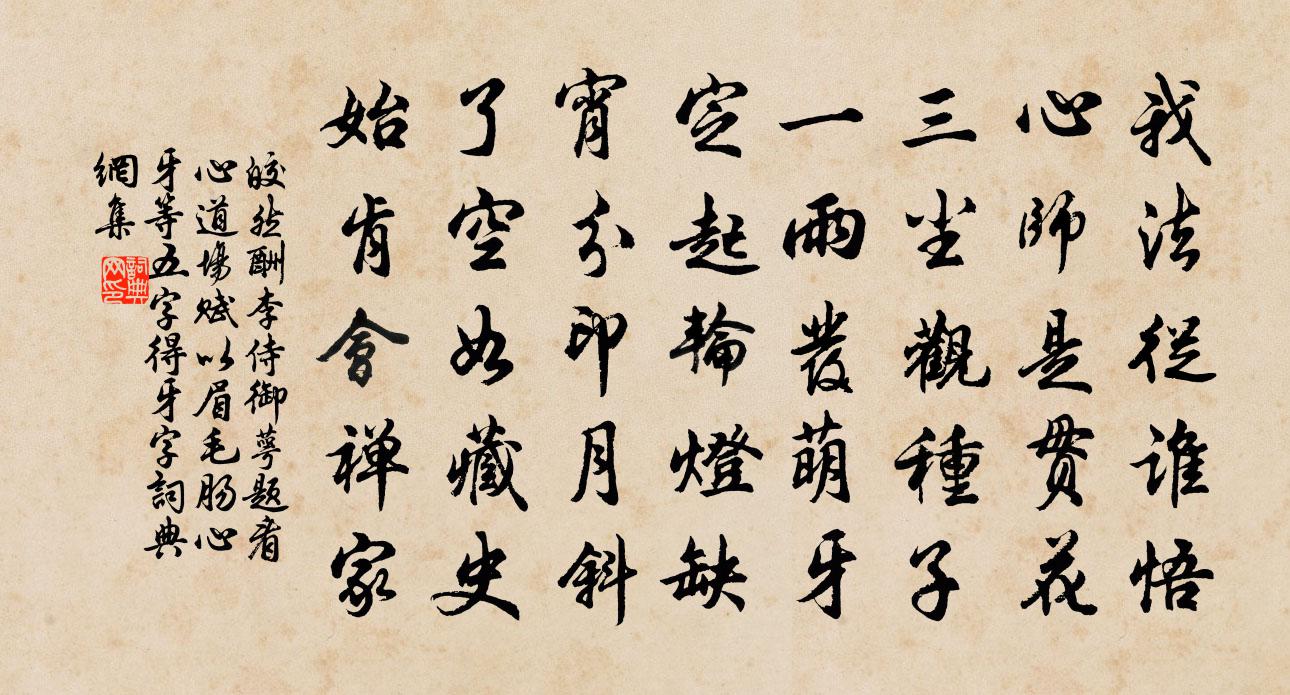 我法從誰悟
心師是貫花
三塵觀種子
一雨發萌牙
定起輪燈缺
宵分印月斜
了空如藏史
始肯會禅家
皎然酬李侍御萼题看
心道場賦以眉毛腸心
牙等五字得牙字詞典
網集
詞典
网印